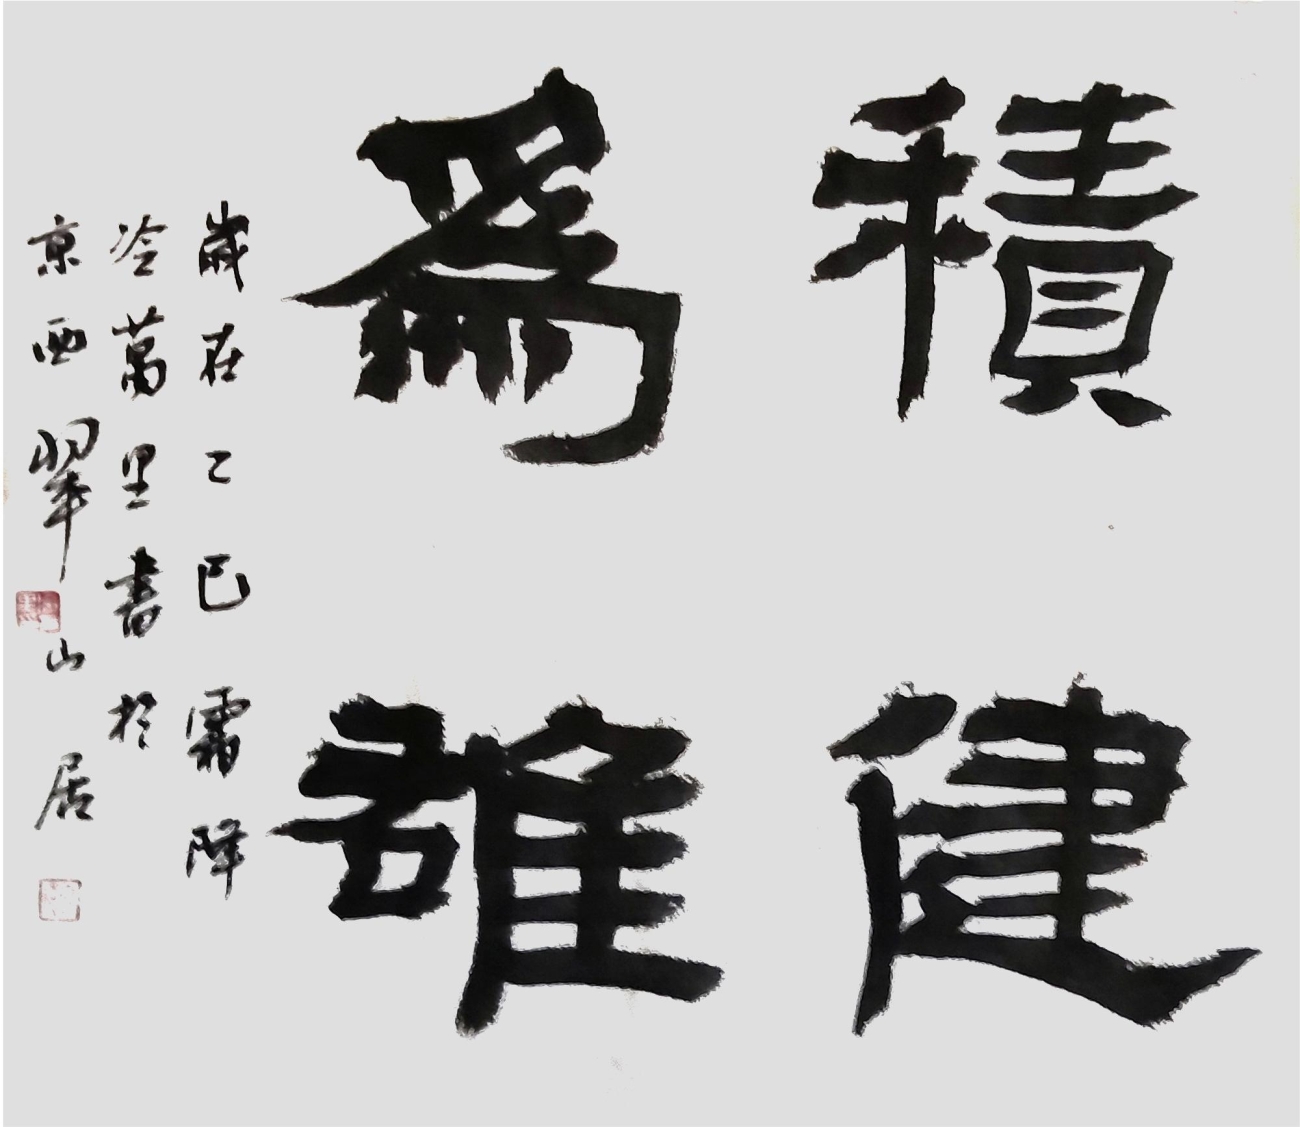 積健
爲雄
歲在乙巳霜降
冷萬里書於
京西翠山居